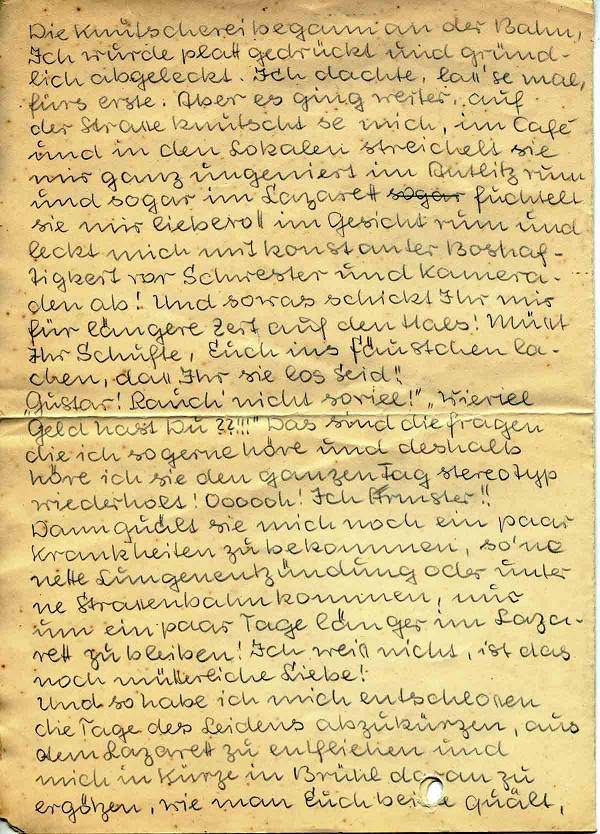 Die Knutscherei begann an der Bahn,
Ich wurde platt gedrückt und gründ-
lich abgeleckt. Ich dachte, lass' se mal,
fürs erste. Aber es ging weiter, auf
der Strasse knutscht se mich, im Café
und in den Lokalen streichelt sie
mir ganz ungeniert im Antlitz rum
und sogar im Lazarett sogar fuchtelt
sie mir liebevoll im Gesicht rum und
leckt mich mit konstanter Boshaf-
tigkeit vor Schwester und Kamera-
den ab! Und sowas schickt Ihr mir
für längere Zeit auf den Hals! Müsst
Ihr Schufte, Euch ins Fäustchen la-
chen, dass Ihr sie los seid!!
"Gustav! Rauch' nicht soviel!" "Wieviel
Geld hast Du ??!!!" Das sind die Fragen
die ich so gerne höre und deshalb
höre ich sie den ganzen Tag stereotyp
wiederholt! Oooooh! Ich Ärmster!!
Dann quält sie mich noch ein paar
Krankheiten zu bekommen, so'ne
nette Lungenentzündung oder unter
ne Strassenbahn kommen, nur
um ein paar Tage länger im Laza-
rett zu bleiben! Ich weiß nicht, ist das
noch mütterliche Liebe!
Und so habe ich mich entschlossen
die Tage des Leidens abzukürzen, aus
dem Lazarett zu entfliehen und
mich in Kürze in Brühl daran zu
ergötzen, wie man Euch beide quält,